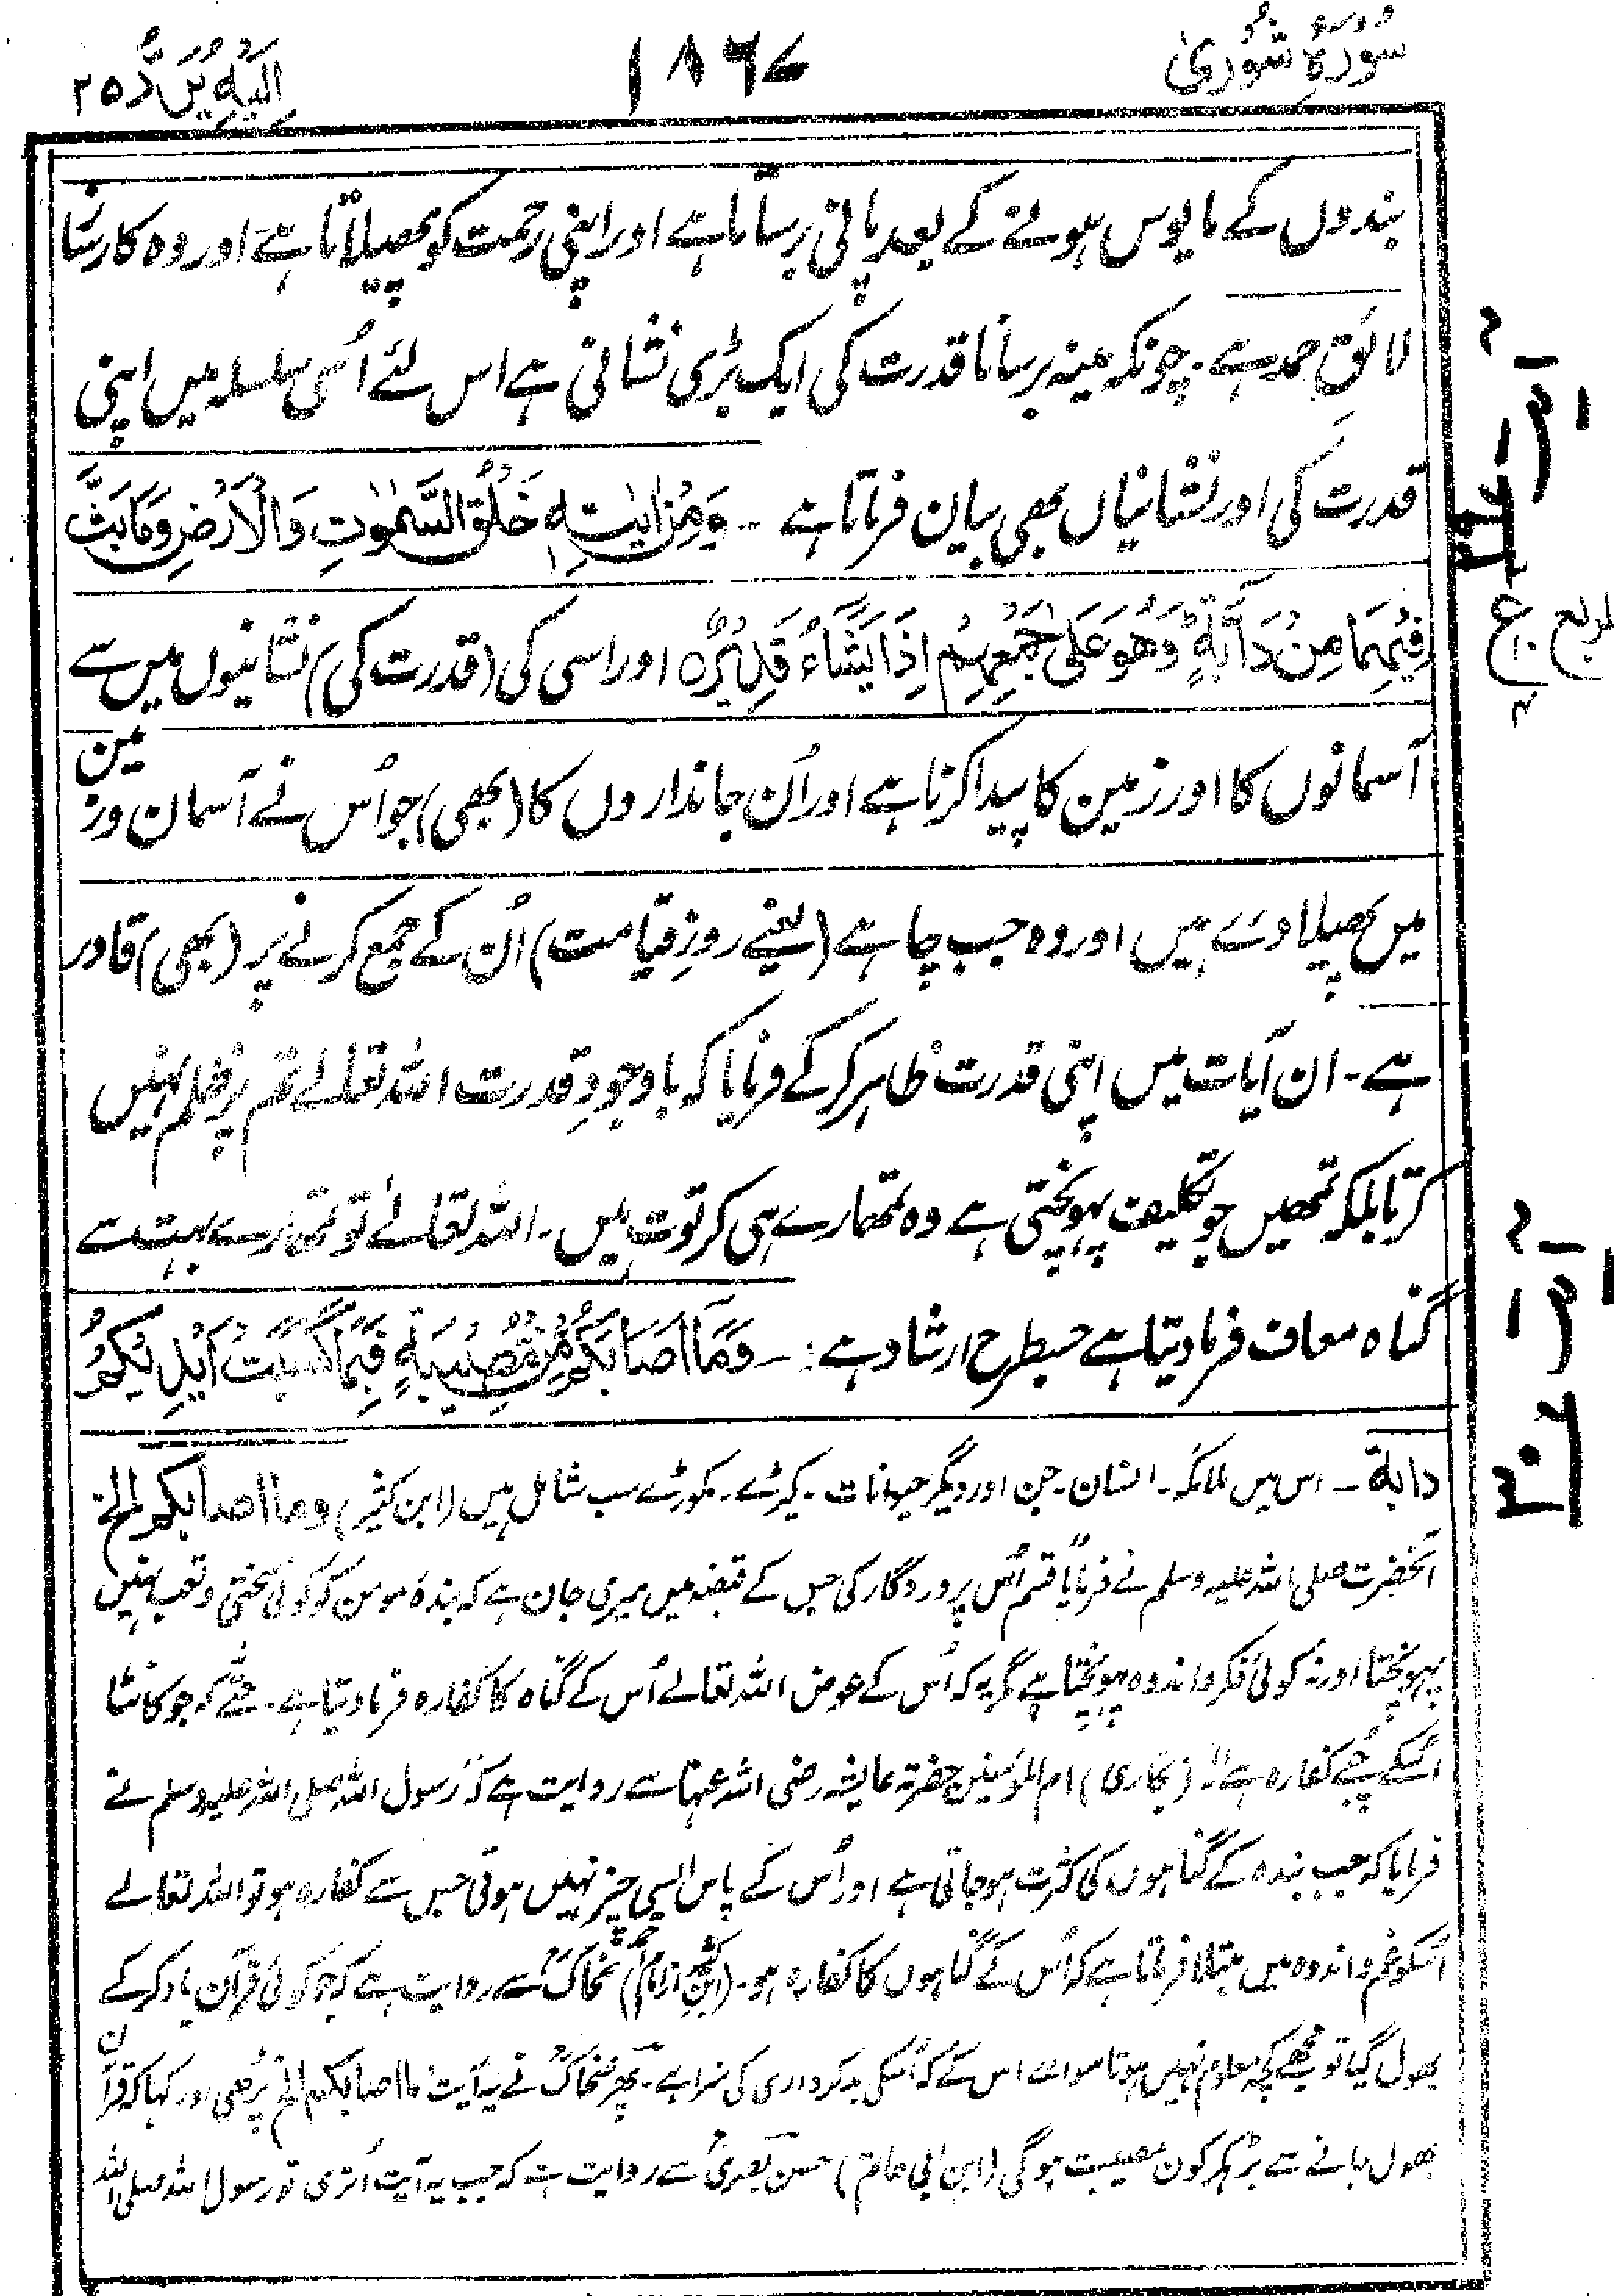 سُوْرَةُ شُوْرٰی
۱۸۶۷
اِلَیْهِ یُرَدُّ ۲۵
بندوں کے مایوس ہونے کے بعد پانی برساتا ہے اور اپنی رحمت کو پھیلاتا ہے اور وہ کارساز
لائقِ حمد ہے۔ چونکہ مینہ برسانا قدرت کی ایک بڑی نشانی ہے اس لئے اُسی سلسلہ میں اپنی
قدرت کی اور نشانیاں بھی بیان فرماتا ہے ۔۔ وَمِنْ اٰیٰتِهٖ خَلْقُ السَّمٰوٰتِ وَالْاَرْضِ وَمَا بَثَّ
فِیْهِمَا مِنْ دَآبَّةٍ ؕ وَهُوَ عَلٰی جَمْعِهِمْ اِذَا یَشَآءُ قَدِیْرٌ ہ اور اسی کی (قدرت کی) نشانیوں میں سے
آسمانوں کا اور زمین کا پیدا کرنا ہے اور اُن جانداروں کا (بھی) جو اُس نے آسمان و زمین
میں پھیلا دئے ہیں اور وہ جب چاہے (یعنے روزِ قیامت) اُن کے جمع کرنے پر (بھی) قادر
ہے۔ ان آیات میں اپنی قدرت ظاہر کر کے فرمایا کہ باوجودِ قدرت اللہ تعالےٰ تم پر ظلم نہیں
کرتا بلکہ تمھیں جو تکلیف پہونچتی ہے وہ تمھارے ہی کرتوت ہیں۔ اللہ تعالےٰ تو تمھارے بہت سے
گناہ معاف فرما دیتا ہے جسطرح ارشاد ہے :۔ وَمَآ اَصَابَكُمْ مِّنْ مُّصِیْبَةٍ فَبِمَا كَسَبَتْ اَیْدِیْكُمْ
دابة ۔ اس میں ملائکہ۔ انسان۔ جن اور دیگر حیوانات ۔ کیڑے۔ مکوڑے سب شامل ہیں (ابن کثیر) وما اصابکم الخ
آنحضرت صلی اللہ علیہ وسلم نے فرمایا قسم اُس پروردگار کی جس کے قبضہ میں میری جان ہے کہ بندۂ مومن کو کوئی سختی و تعب نہیں
پہونچتا اور نہ کوئی فکر و اندوہ پہونچتا ہے مگر یہ کہ اُس کے عوض اللہ تعالےٰ اُس کے گناہ کا کفارہ فرما دیتا ہے۔ حتےٰ کہ جو کانٹا
اُسکے چُبھے کفارہ ہے"۔ (بخاری) ام المؤمنین حضرۃ عایشہ رضی اللہ عنہا سے روایت ہے کہ رسول اللہ صلی اللہ علیہ وسلم نے
فرمایا کہ جب بندہ کے گناہوں کی کثرت ہو جاتی ہے اور اُس کے پاس ایسی چیز نہیں ہوتی جس سے کفارہ ہو تو اللہ تعالےٰ
اُسکو غم و اندوہ میں مبتلا فرماتا ہے کہ اُس کے گناہوں کا کفارہ ہو۔ ضحاکؒ سے روایت ہے کہ جو کوئی قرآن یاد کر کے
بھول گیا تو مجھے کچھ معلوم نہیں ہوتا سوائے اس کے کہ اُسکی بدکرداری کی سزا ہے۔ پھر ضحاکؒ نے یہ آیت ما اصابکم الخ پڑھی اور کہا کہ قرآن
بھول جانے سے بڑھکر کون مصیبت ہو گی (ابن ابی حاتم) حسن بصریؒ سے روایت ہے کہ جب یہ آیت اُتری تو رسول اللہ صلی اللہ